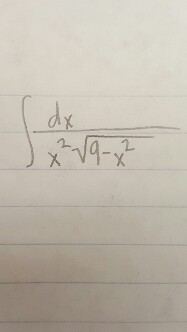 ∫ dx / (x² √(9-x²))